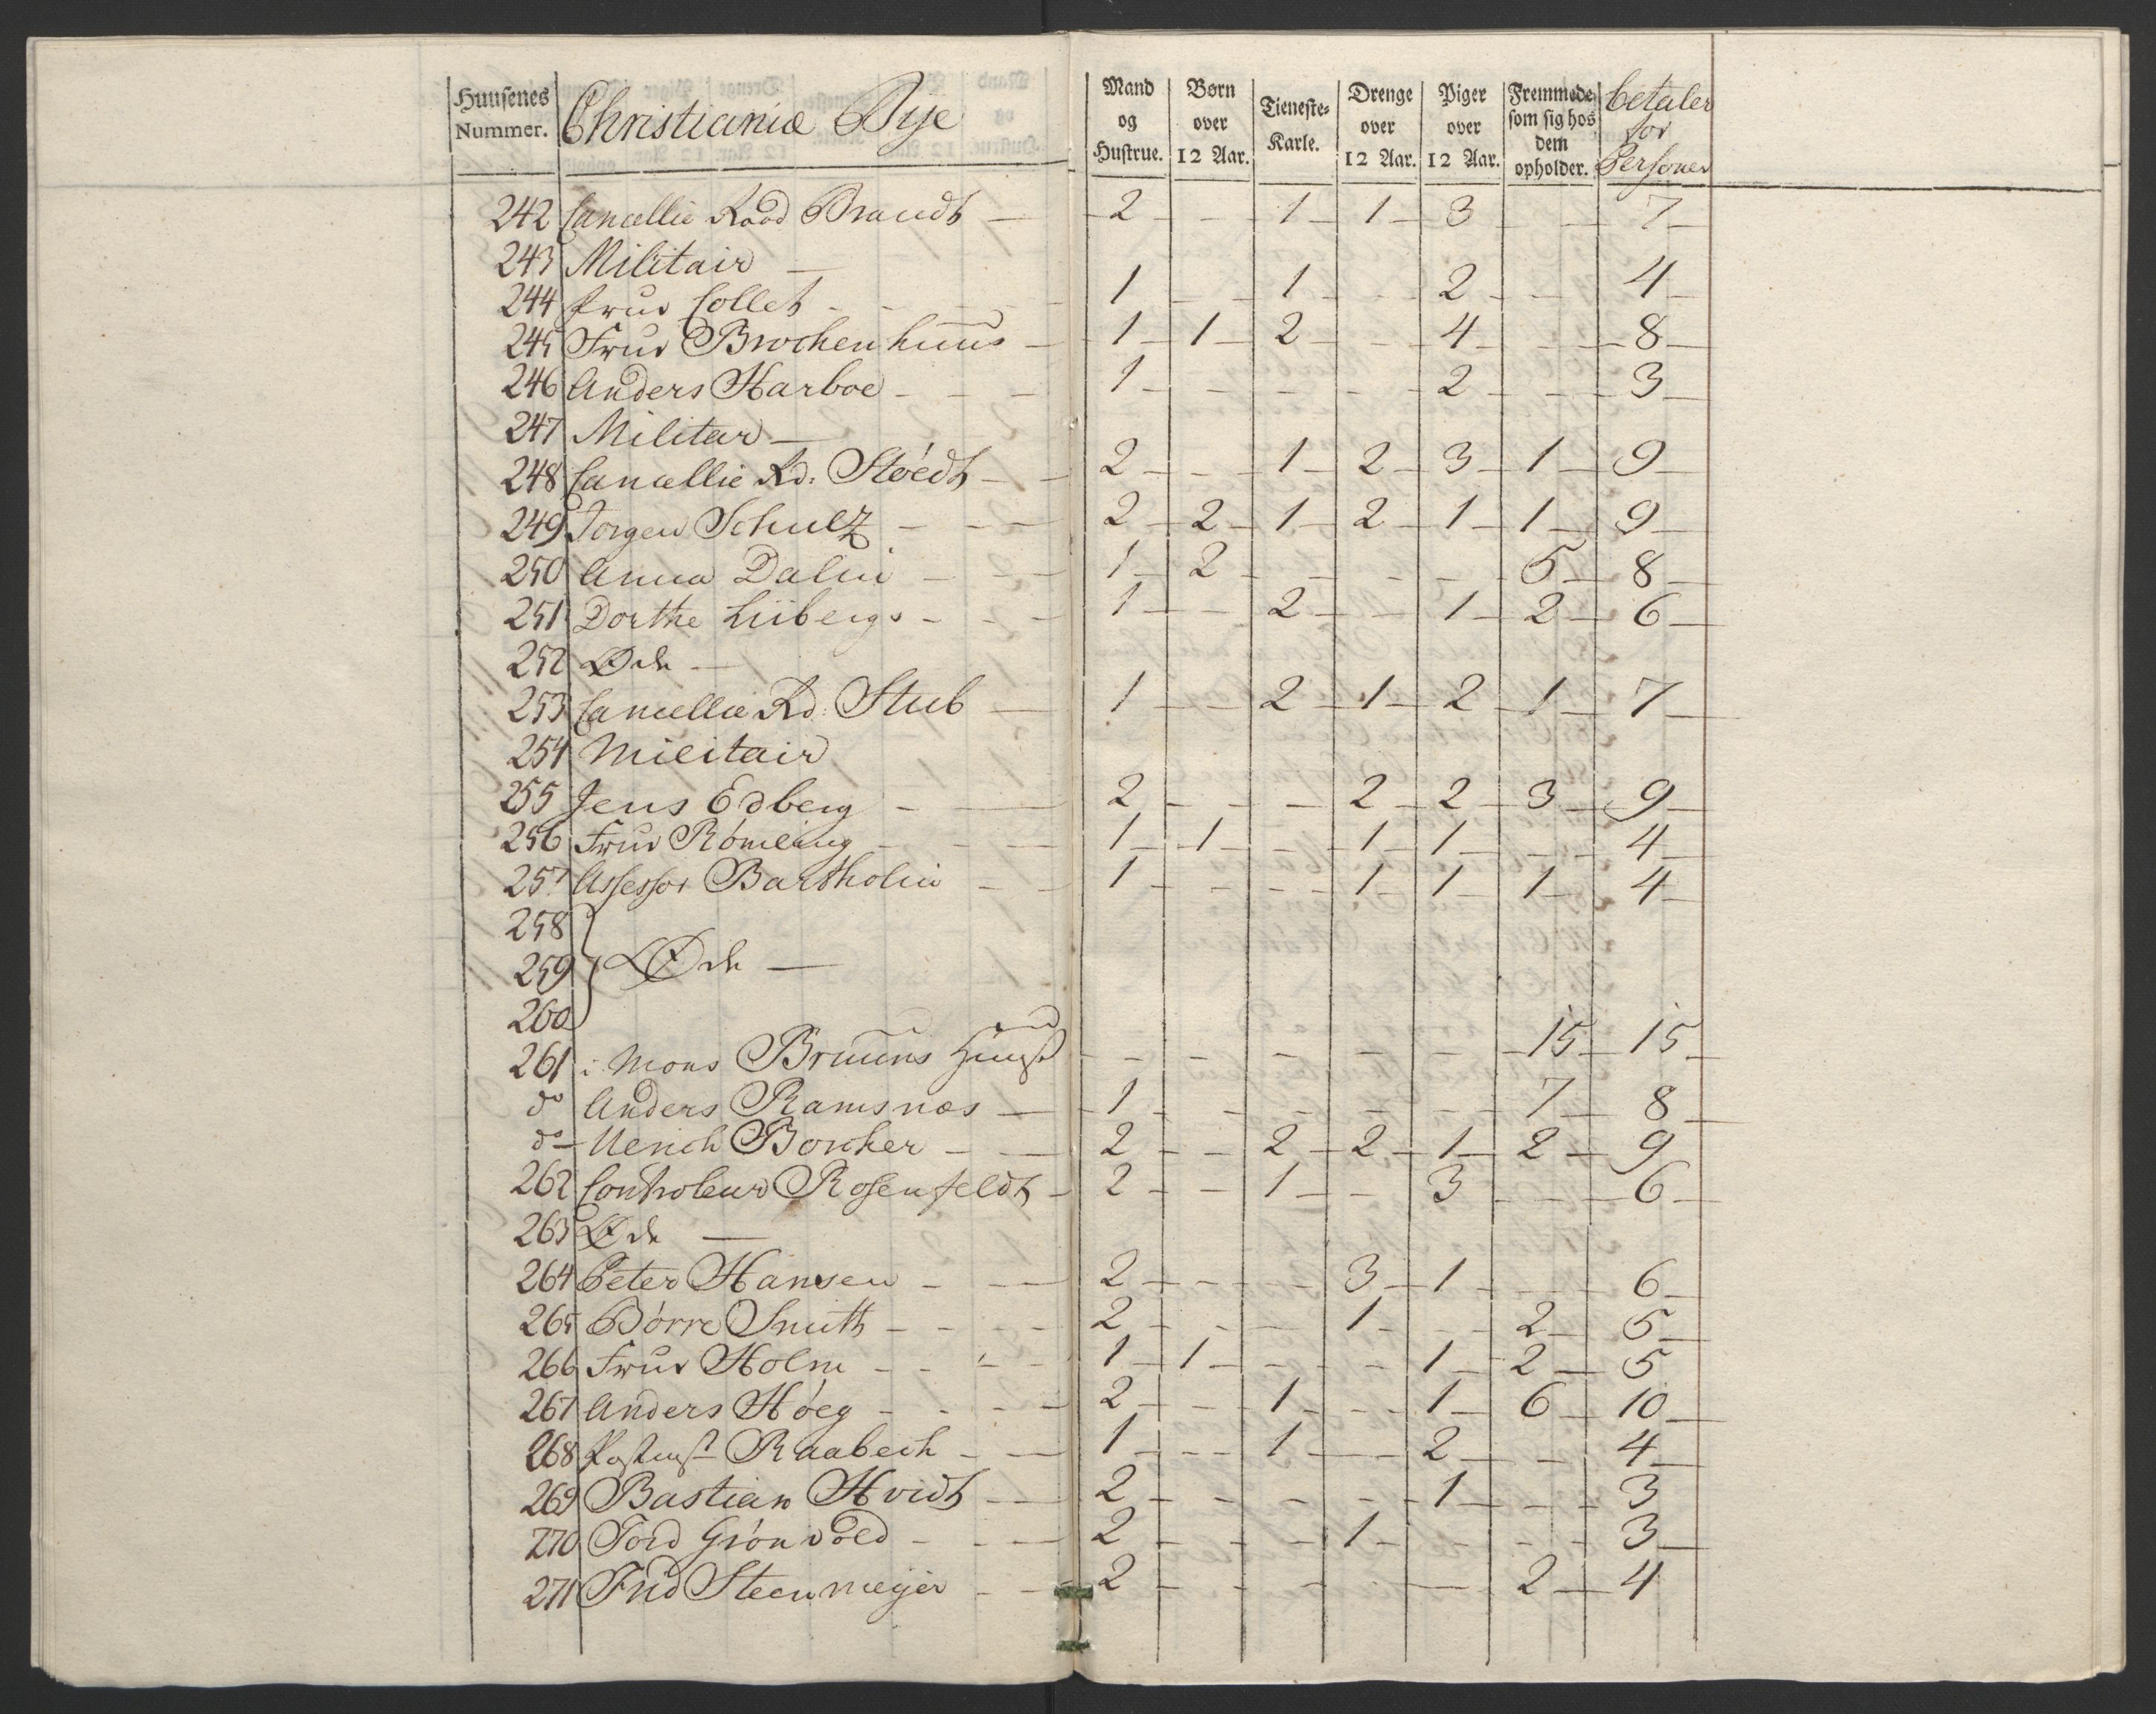 Huusenes Nummer. Christianiæ Bye Mand og Hustrue. Børn over 12 Aar. Tieneste-Karle. Drenge over 12 Aar. Piger over 12 Aar. Fremmede som sig hos dem opholder. betaler for Personer
242 Cancellie Raad Brandt — 2 - - 1 - 1 - 3 - - 7
243 Militair —
244 Frue Collet - - 1 - - 1 - - 2 - - 4
245 Frue Brochenhuus - 1 - 1 - 2 - - 4 - - 8
246 Anders Harboe - - - 1 - - - - 2 - - 3
247 Militair —
248 Cancellie Rd: Støedt - - 2 - - 1 - 2 - 3 - 1 - 9
249 Jorgen Schulz - - - 2 - 2 - 1 - 2 - 1 - 1 - 9
250 Anna Dalin - - - 1 - 2 - - - - 5 - 8
251 Dorthe Liibergs - - - 1 - - 2 - - 1 - 2 - 6
252 Øde —
253 Cancellie Rd: Stub — 1 - - 2 - 1 - 2 - 1 - 7
254 Militair
255 Jens Edberg - - 2 - - - 2 - 2 - 3 - 9
256 Frue Römeling - - - 1 - 1 - - 1 - 1 - - 4
257 Assessor Bartholin - - 1 - - - - 1 - 1 - 1 - 4
258
259 Øde —
260
261 i Mons Bruuns Huus - - - - - 15 - 15
do Anders Ramsnæs — 1 - - - - - 7 - 8
do - Ulrich Borcher - - 2 - - 2 - 2 - 1 - 2 - 9
262 Controleur Rosenfeldt - 2 - - 1 - - 3 - - 6
263 Øde —
264 Peter Hansen - - 2 - - - - 3 - 1 - - 6
265 Börre Smith - - - - 2 - - - 1 - - 2 - 5
266 Frue Holm - - - - 1 - 1 - - - - 1 - 2 - 5
267 Anders Höeg - - - - 2 - - 1 - - 1 - 6 - 10
268 Postmst Raabech - - 1 - - - 1 - - 2 - - 4
269 Bastian Hvidt - - 2 - - - - - 1 - - 3
270 Tord Grönvold - - - 2 - - - 1 - - - - 3
271 Frid Steenmeyer - - 2 - - - - - 2 - 4